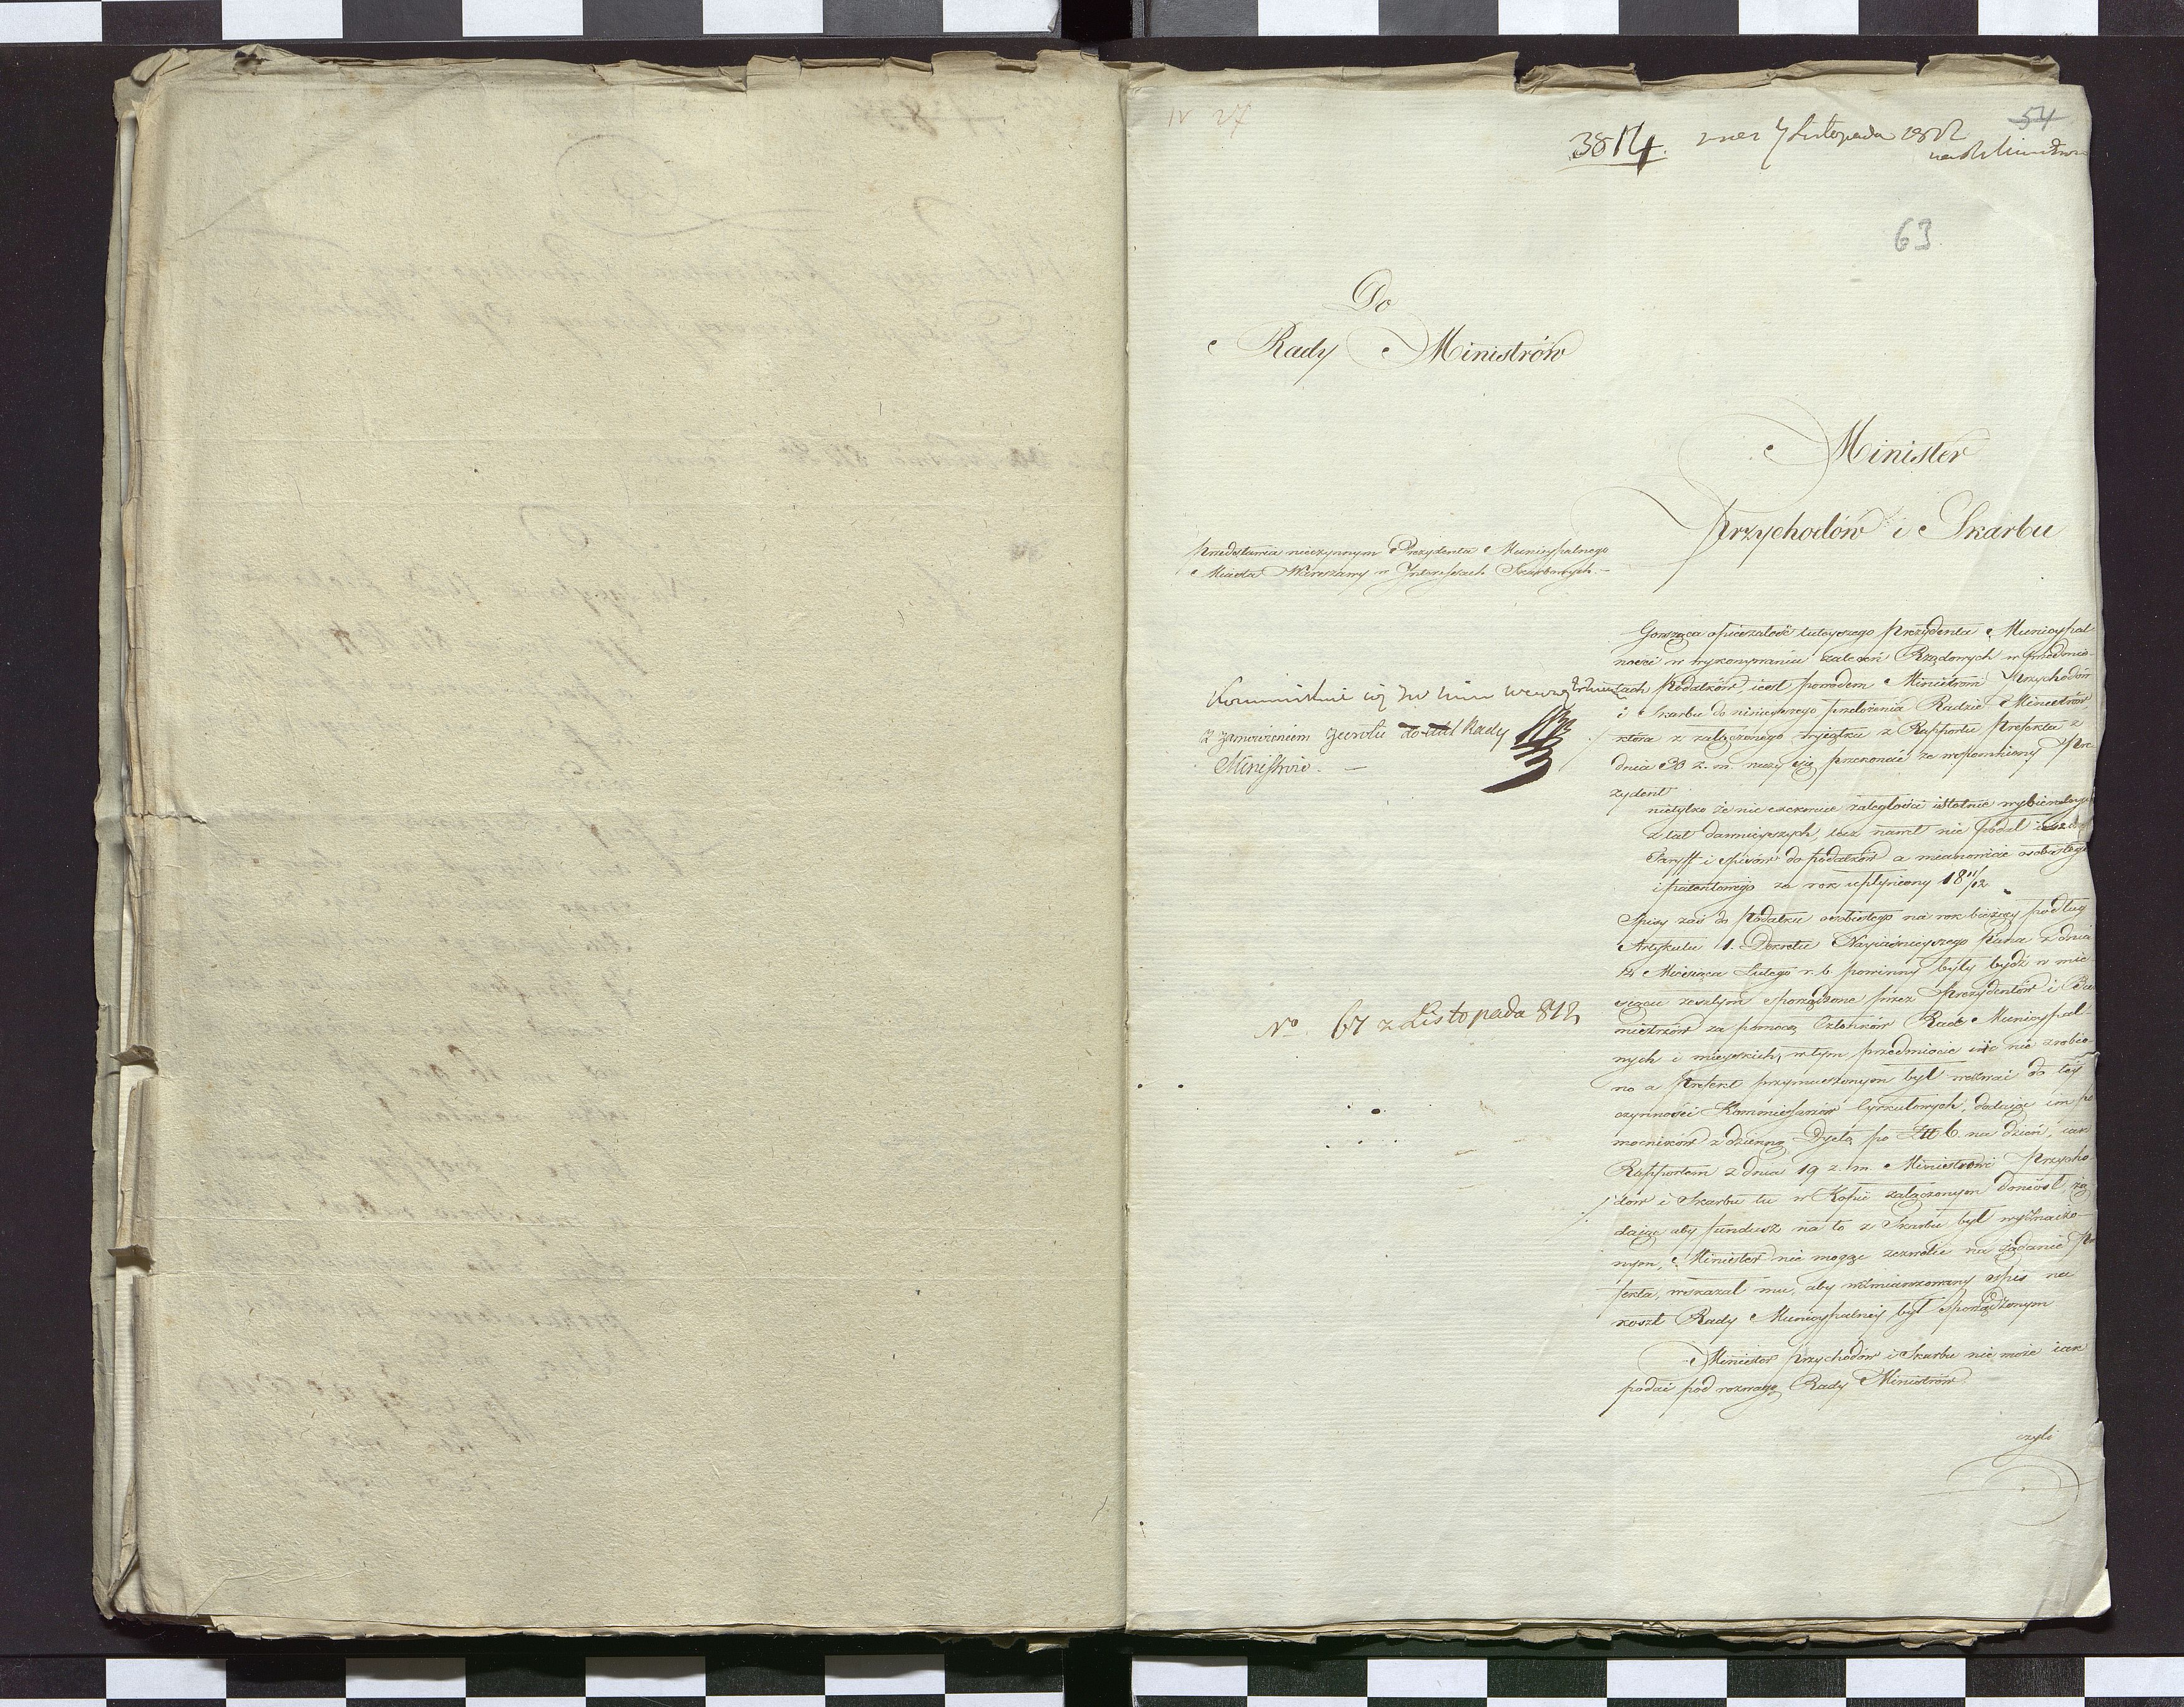 IV 27
3814. 7 Listopada 1812
54
63
Do
Rady Ministrów
Minister
Przychodów i Skarbu
Przedstawia nieczynnym Prezydenta Municypalnego
Miasta Warszawy w Interessach Skarbowych.
Kommunikuie się JW
z zamówieniem zwrotu do Rady
Ministrów. —
No 67 z Listopada 812
Gorsząca opieszałość tuteyszego Prezydenta Municypal
ności w wykonywaniu zaleceń Rządowych w przedmio-
tach Podatków, iest powodem Ministrowi Przychodów
i Skarbu do ninieyszego przełożenia Radzie Ministrów
która z załączonego wyiątku z Rapportu Prefekta z
dnia 30 z. m. raczy się przekonać że wspomniony Pre
zydent
nietylko że nie exekwuie zaległości istotnie wybieralnych
z lat dawnieyszych, lecz nawet nie podał ieszcze
Taryff i spisów do podatków a mianowicie osobistego
i patentowego za rok upłyniony 18 11/12.
Spisy zaś do Podatku osobistego na rok bieżący podług
Artykułu 1. Dekretu Nayiaśnieyszego Pana z dnia
14 Miesiąca Lutego r. b. powinny były bydź w mie
siącu zeszłym sporządzone przez Prezydentów i Bur
mistrzów za pomocą Członków Rad Municypal-
nych i mieyskich, w tym przedmiocie nic nie zrobio-
no a Prefekt przymuszonym był wezwać do tey
czynności Kommissarzów Cyrkułowych, dodaiąc im po
mocników z dzienną Dyetą po Zł 6. na dzień, iak
Rapportem z dnia 19 z. m. Ministrowi Przycho
dów i Skarbu tu w Kopii załączonym doniósł, żą
daiąc aby fundusz na to z Skarbu był wyznaczo-
nym, Minister nie mogąc zezwolić na żądanie Pre
fekta, wskazał mu, aby wzmiankowany spis na
koszt Rady Municypalney był sporządzonym
Minister Przychodów i Skarbu nie może iak
podać pod rozwagę Rady Ministrów
czyli